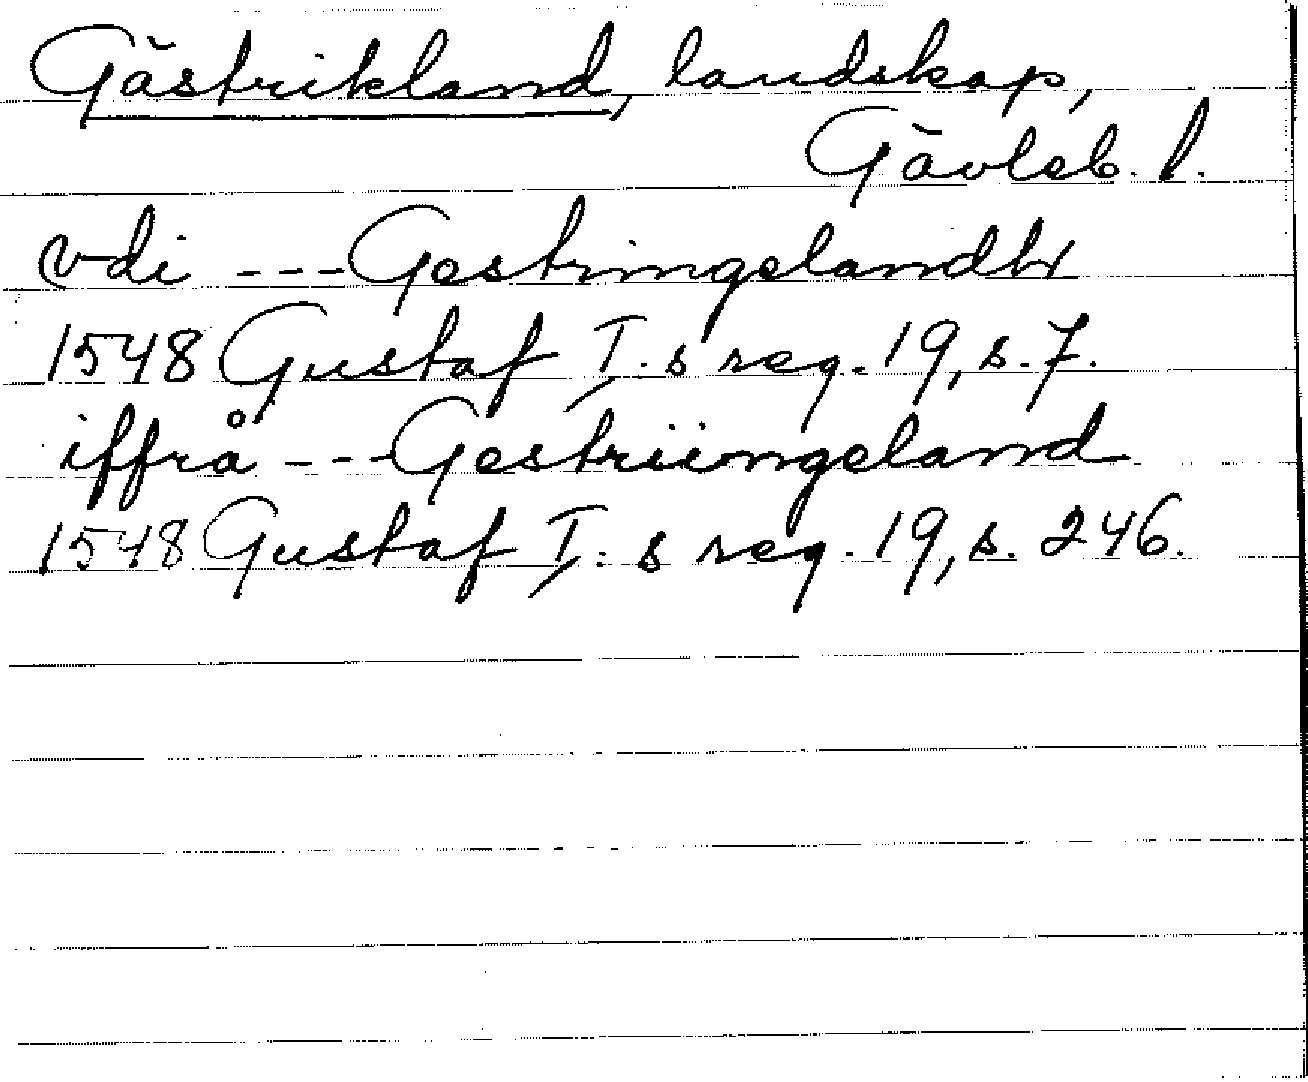 Gästrikland, landskap,
Gävleb. l.
vdi --- Gestringelandh
1548 Gustaf I.s reg. 19, s. 7.
iffrå --- Gestriingeland
1548 Gustaf I.s reg. 19, s. 246.